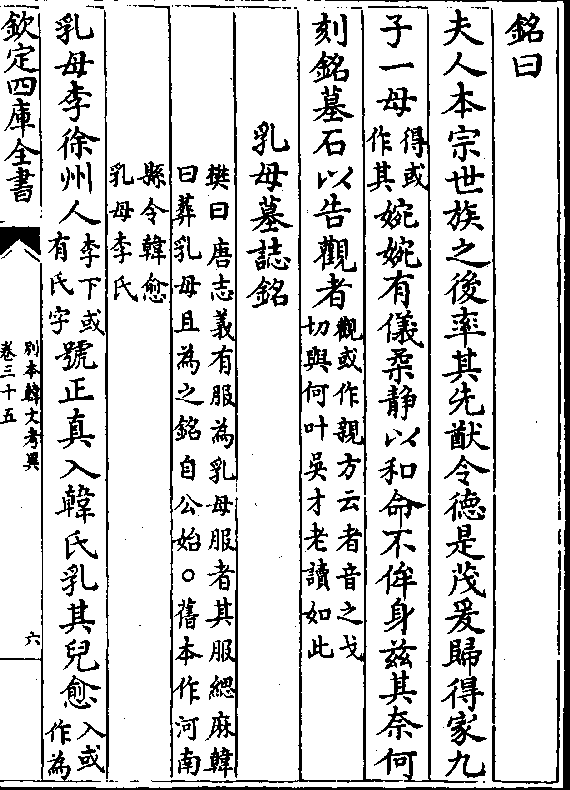 銘曰
夫人本宗世族之後率其先猷令德是茂爰歸得家九
子一母得或作其婉婉有儀柔静以和命不侔身兹其奈何
刻銘墓石以告觀者觀或作親方云者音之戈切與何叶吳才老讀如此
乳母墓誌銘
樊曰唐志義有服為乳母服者其服緦麻韓
曰葬乳母且為之銘自公始○舊本作河南
縣令韓愈
乳母李氏
乳母李徐州人李下或有氏字號正真入韓氏乳其兒愈入或作為
欽定四庫全書
别本韓文考異
卷三十五
六